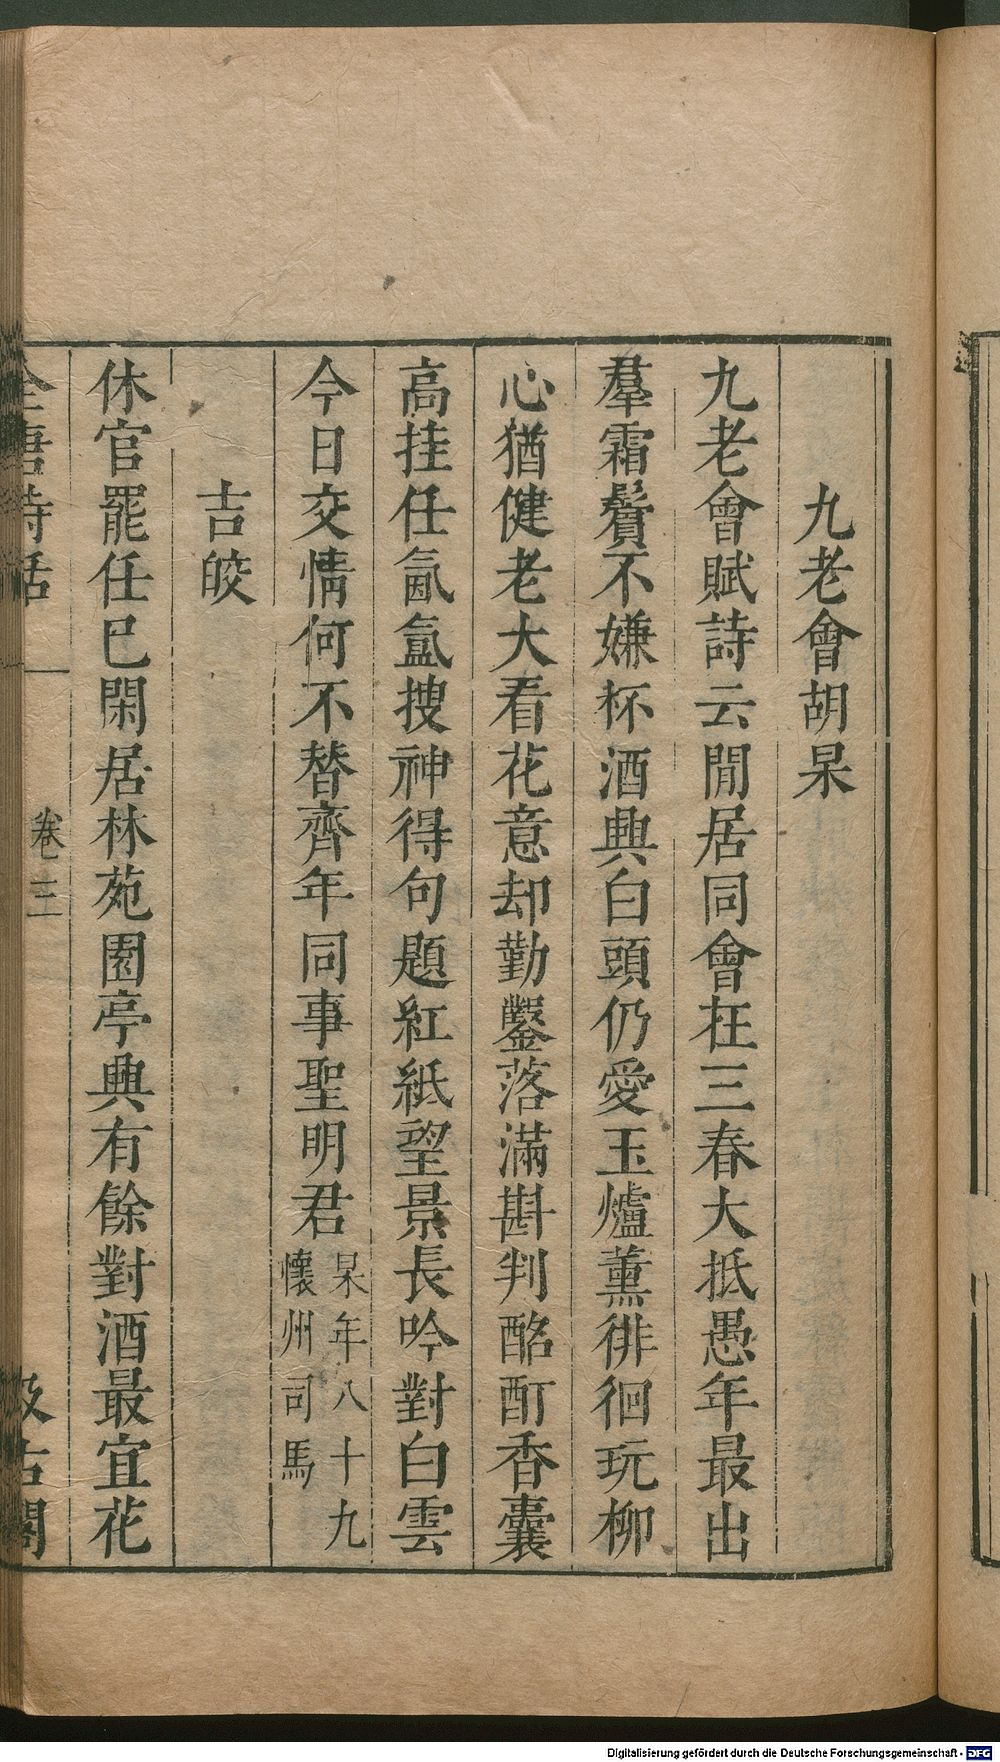 九老會胡杲
九老會賦詩云閒居同會在三春大抵愚年最出
羣霜鬢不嫌杯酒興白頭仍愛玉爐薰徘徊玩柳
心猶健老大看花意却勤鑿落滿斟判酩酊香囊
高挂任氤氳搜神得句題紅紙望景長吟對白雲
今日交情何不替齊年同事聖明君
杲年八十九
懷州司馬
吉皎
休官罷任巳閑居林苑園亭興有餘對酒最宜花
全唐詩話
卷三
汲古閣
Digitalisierung gefördert durch die Deutsche Forschungsgemeinschaft - DFG